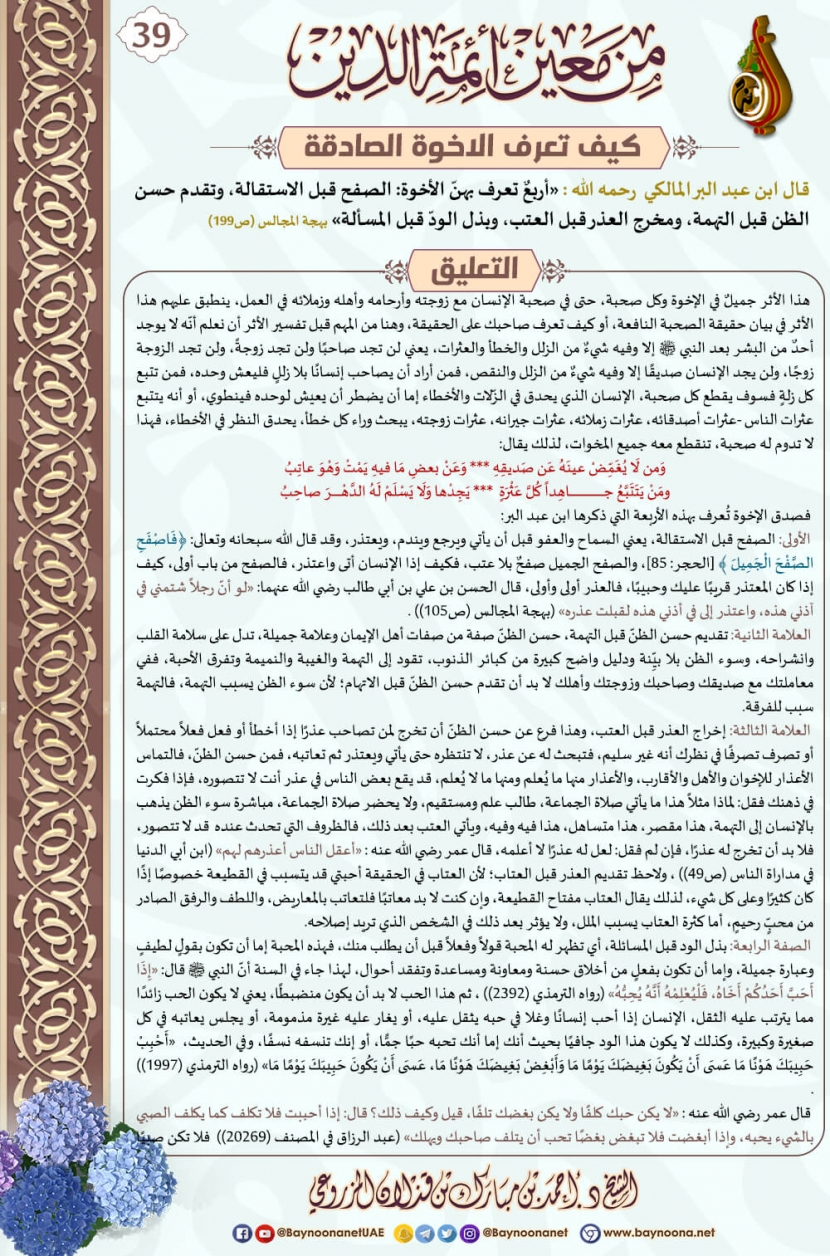 39
من معين أئمة الدين
كيف تعرف الاخوة الصادقة
قال ابن عبد البر المالكي رحمه الله : «أربعٌ تعرف بهنّ الأخوة: الصفح قبل الاستقالة، وتقدم حسن
الظن قبل التهمة، ومخرج العذر قبل العتب، وبذل الودّ قبل المسألة» بهجة المجالس (ص199)
التعليق
هذا الأثر جميلٌ في الإخوة وكل صحبة، حتى في صحبة الإنسان مع زوجته وأرحامه وأهله وزملائه في العمل، ينطبق عليهم هذا
الأثر في بيان حقيقة الصحبة النافعة، أو كيف تعرف صاحبك على الحقيقة، وهنا من المهم قبل تفسير الأثر أن نعلم أنّه لا يوجد
أحدٌ من البشر بعد النبي ﷺ إلا وفيه شيءٌ من الزلل والخطأ والعثرات، يعني لن تجد صاحبًا ولن تجد زوجةً، ولن تجد الزوجة
زوجًا، ولن يجد الإنسان صديقًا إلا وفيه شيءٌ من الزلل والنقص، فمن أراد أن يصاحب إنسانًا بلا زللٍ فليعش وحده، فمن تتبع
كل زلةٍ فسوف يقطع كل صحبة، الإنسان الذي يحدق في الزّلات والأخطاء إما أن يضطر أن يعيش لوحده فينطوي، أو أنه يتتبع
عثرات الناس -عثرات أصدقائه، عثرات زملائه، عثرات جيرانه، عثرات زوجته، يبحث وراء كل خطأ، يحدق النظر في الأخطاء، فهذا
لا تدوم له صحبة، تنقطع معه جميع المخوات، لذلك يقال:
وَمن لَا يُغَمِّضْ عينَهُ عَن صَديقِهِ *** وَعَنْ بعضِ مَا فيهِ يَمُتْ وَهْوَ عاتِبُ
ومَنْ يَتَتَبَّع جـــــــاهِداً كُلَّ عَثْرَةٍ *** يَجِدْها وَلَا يَسْلَمْ لَهُ الدَّهْـرَ صاحِبُ
فصدق الإخوة تُعرف بهذه الأربعة التي ذكرها ابن عبد البر:
الأولى: الصفح قبل الاستقالة، يعني السماح والعفو قبل أن يأتي ويرجع ويندم، ويعتذر، وقد قال الله سبحانه وتعالى: ﴿فَاصْفَحِ
الصَّفْحَ الْجَمِيلَ ﴾ [الحجر: 85]، والصفح الجميل صفحٌ بلا عتب، فكيف إذا الإنسان أتى واعتذر، فالصفح من باب أولى، كيف
إذا كان المعتذر قريبًا عليك وحبيبًا، فالعذر أولى وأولى، قال الحسن بن علي بن أبي طالب رضي الله عنهما: «لو أنّ رجلاً شتمني في
آذني هذه، واعتذر إلى في أذني هذه لقبلت عذره» (بهجة المجالس (ص105)) .
العلامة الثانية: تقديم حسن الظنّ قبل التهمة، حسن الظنّ صفة من صفات أهل الإيمان وعلامة جميلة، تدل على سلامة القلب
وانشراحه، وسوء الظن بلا بيّنة ودليل واضح كبيرة من كبائر الذنوب، تقود إلى التهمة والغيبة والنميمة وتفرق الأحبة، ففي
معاملتك مع صديقك وصاحبك وزوجتك وأهلك لا بد أن تقدم حسن الظنّ قبل الاتهام؛ لأن سوء الظن يسبب التهمة، فالتهمة
سبب للفرقة.
العلامة الثالثة: إخراج العذر قبل العتب، وهذا فرع عن حسن الظنّ أن تخرج لمن تصاحب عذرًا إذا أخطأ أو فعل فعلاً محتملاً
أو تصرف تصرفًا في نظرك أنه غير سليم، فتبحث له عن عذر، لا تنتظره حتى يأتي ويعتذر ثم تعاتبه، فمن حسن الظنّ، فالتماس
الأعذار للإخوان والأهل والأقارب، والأعذار منها ما يُعلم ومنها ما لا يُعلم، قد يقع بعض الناس في عذر أنت لا تتصوره، فإذا فكرت
في ذهنك فقل: لماذا مثلاً هذا ما يأتي صلاة الجماعة، طالب علم ومستقيم، ولا يحضر صلاة الجماعة، مباشرة سوء الظن يذهب
بالإنسان إلى التهمة، هذا مقصر، هذا متساهل، هذا فيه وفيه، ويأتي العتب بعد ذلك، فالظروف التي تحدث عنده قد لا تتصور،
فلا بد أن تخرج له عذرًا، فإن لم فقل: لعل له عذرًا لا أعلمه، قال عمر رضي الله عنه : «أعقل الناس أعذرهم لهم» (ابن أبي الدنيا
في مداراة الناس (ص49)) ، ولاحظ تقديم العذر قبل العتاب؛ لأن العتاب في الحقيقة أحبتي قد يتسبب في القطيعة خصوصًا إذًا
كان كثيرًا وعلى كل شيء، لذلك يقال العتاب مفتاح القطيعة، وإن كنت لا بد معاتبًا فلتعاتب بالمعاريض، واللطف والرفق الصادر
من محبّ رحيمٍ، أما كثرة العتاب يسبب الملل، ولا يؤثر بعد ذلك في الشخص الذي تريد إصلاحه.
الصفة الرابعة: بذل الود قبل المسائلة، أي تظهر له المحبة قولاً وفعلاً قبل أن يطلب منك، فهذه المحبة إما أن تكون بقولٍ لطيفٍ
وعبارة جميلة، وإما أن تكون بفعلٍ من أخلاق حسنة ومعاونة ومساعدة وتفقد أحوال، لهذا جاء في السنة أنّ النبي ﷺ قال: «إِذَا
أَحَبَّ أَحَدُكُمْ أَخَاهُ، فَلْيُعْلِمْهُ أَنَّهُ يُحِبُّهُ» (رواه الترمذي (2392)) ، ثم هذا الحب لا بد أن يكون منضبطًا، يعني لا يكون الحب زائدًا
مما يترتب عليه الثقل، الإنسان إذا أحب إنسانًا وغلا في حبه يثقل عليه، أو يغار عليه غيرة مذمومة، أو يجلس يعاتبه في كل
صغيرة وكبيرة، وكذلك لا يكون هذا الود جافيًا بحيث أنك إما أنك تحبه حبًا جمًّا، أو إنك تنسفه نسفًا، وفي الحديث، «أَحْبِبْ
حَبِيبَكَ هَوْنًا مَا عَسَى أَنْ يَكُونَ بَغِيضَكَ يَوْمًا مَا وَأَبْغِضْ بَغِيضَكَ هَوْنًا مَا، عَسَى أَنْ يَكُونَ حَبِيبَكَ يَوْمًا مَا» (رواه الترمذي (1997))
.
قال عمر رضي الله عنه : «لا يكن حبك كلفًا ولا يكن بغضك تلفًا، قيل وكيف ذلك؟ قال: إذا أحببت فلا تكلف كما يكلف الصبي
بالشيء يحبه، وإذا أبغضت فلا تبغض بغضًا تحب أن يتلف صاحبك ويهلك» (عبد الرزاق في المصنف (20269)) فلا تكن صبيًا
الشيخ د. أحمد بن مبارك بن قذلان المزروعي
@BaynoonanetUAE @Baynoonanet www.baynoona.net